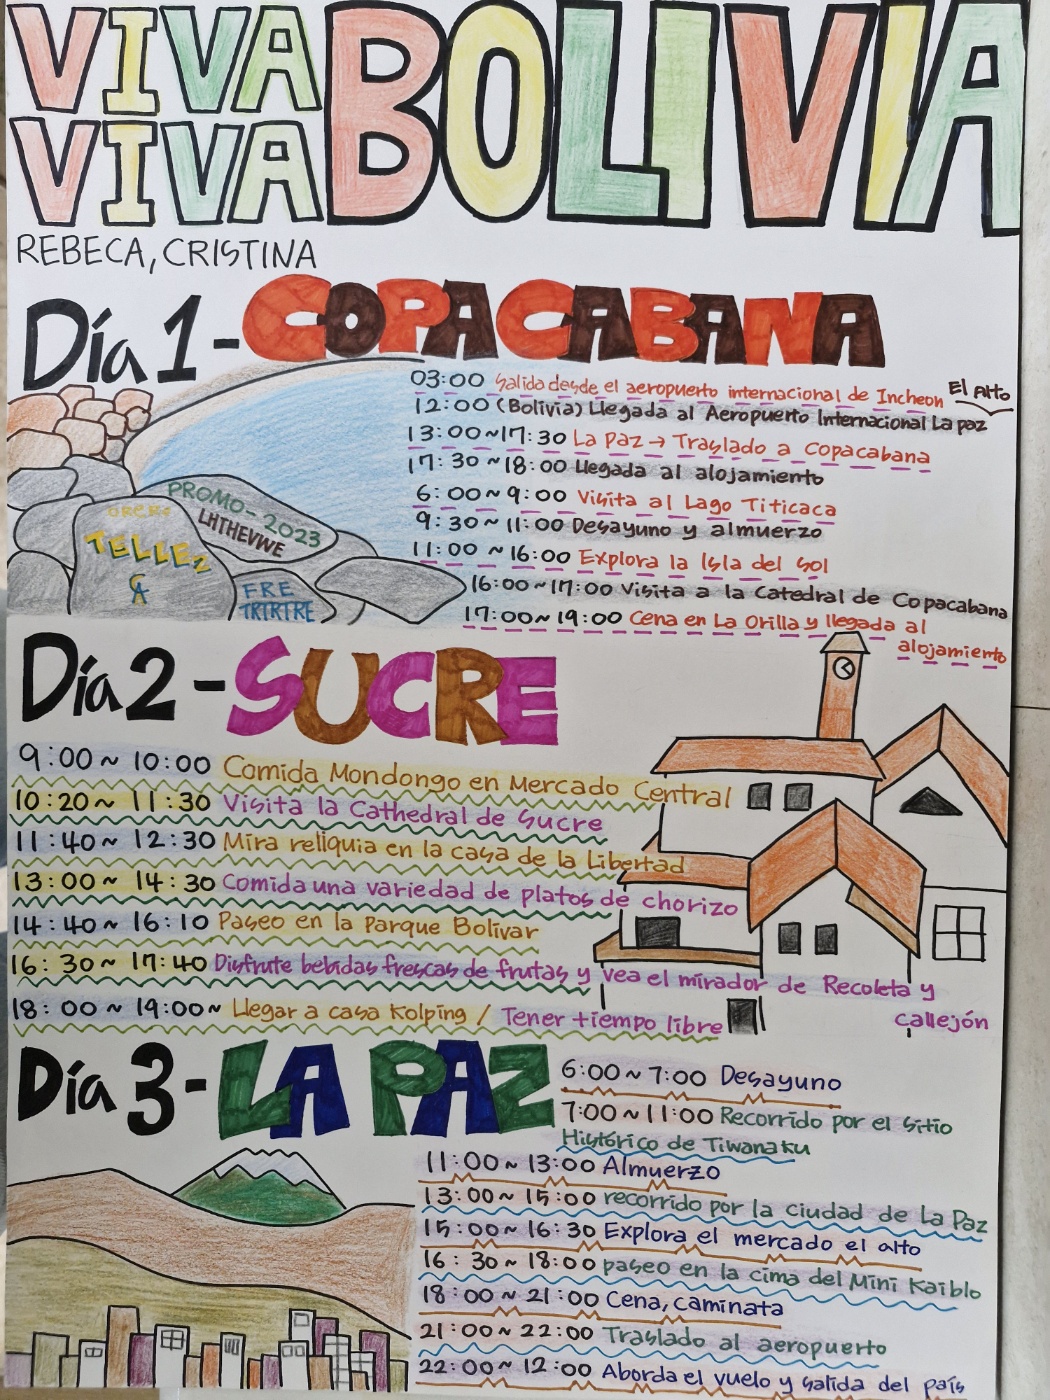 VIVA BOLIVIA
VIVA
REBECA, CRISTINA
Día 1 - COPACABANA
03:00 Salida desde el aeropuerto internacional de Incheon
El Alto
12:00 (Bolivia) Llegada al Aeropuerto Internacional La paz
13:00~17:30 La Paz → Traslado a Copacabana
17:30~18:00 Llegada al alojamiento
6:00~9:00 Visita al Lago Titicaca
9:30~11:00 Desayuno y almuerzo
11:00~16:00 Explora la Isla del Sol
16:00~17:00 Visita a la Catedral de Copacabana
17:00~19:00 Cena en La Orilla y llegada al
alojamiento
PROMO-2023
LHTHEVWE
TELLEZ
CA
FRE
TRTRTRE
Día 2 - SUCRE
9:00~10:00 Comida Mondongo en Mercado Central
10:20~11:30 Visita la Cathedral de Sucre
11:40~12:30 Mira reliquia en la casa de la Libertad
13:00~14:30 Comida una variedad de platos de chorizo
14:40~16:10 Paseo en la Parque Bolivar
16:30~17:40 Disfrute bebidas frescas de frutas y vea el mirador de Recoleta y
callejón
18:00~19:00~ Llegar a casa Kolping / Tener tiempo libre
Día 3 - LA PAZ
6:00~7:00 Desayuno
7:00~11:00 Recorrido por el Sitio
Histórico de Tiwanaku
11:00~13:00 Almuerzo
13:00~15:00 recorrido por la ciudad de La Paz
15:00~16:30 Explora el mercado el alto
16:30~18:00 paseo en la cima del Mini Kaiblo
18:00~21:00 Cena, caminata
21:00~22:00 Traslado al aeropuerto
22:00~12:00 Aborda el vuelo y salida del país